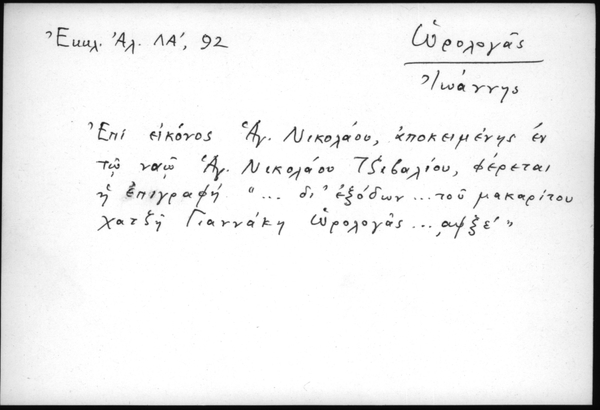 Ἐκκλ. Ἀλ. ΛΑ', 92
Ὡρολογᾶς
Ἰωάννης
Ἐπί εἰκόνος Ἁγ. Νικολάου, ἀποκειμένης ἐν
τῷ ναῷ Ἁγ. Νικολάου Τζιβαλίου, φέρεται
ἡ ἐπιγραφή "... δι' ἐξόδων ... τοῦ μακαρίτου
χατζῆ Γιαννάκη Ὡρολογᾶς ... ͵αψξε' "